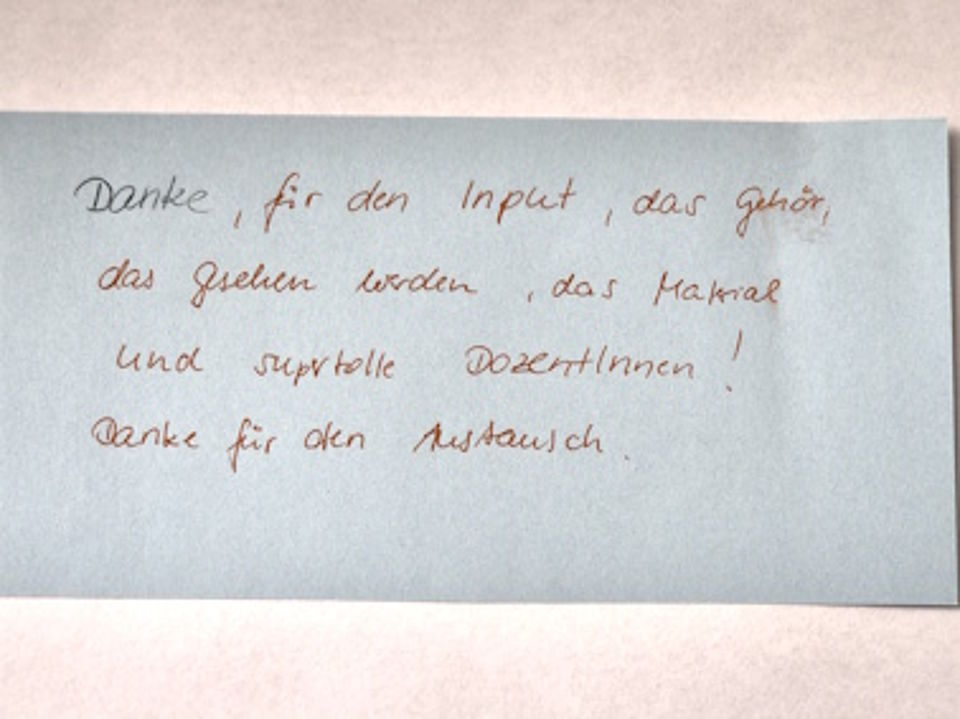 Danke, für den Input, das Gehör,
das gesehen werden, das Material
und supertolle DozentInnen!
Danke für den Austausch.